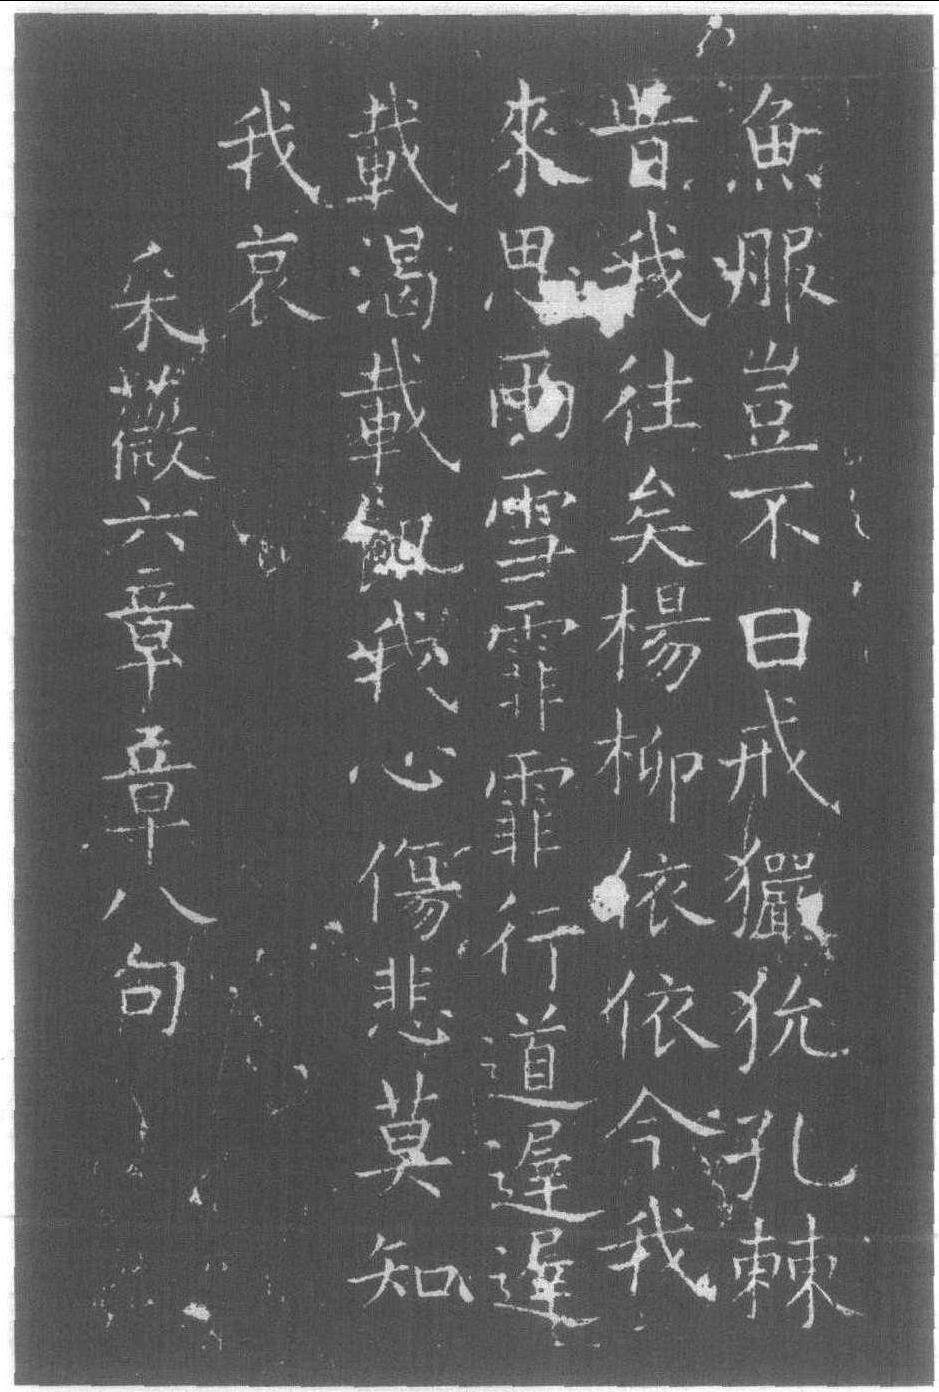 魚服豈不日戒玁狁孔棘
昔我往矣楊柳依依今我
來思雨雪霏霏行道遲遲
載渴載飢我心傷悲莫知
我哀
采薇六章章八句